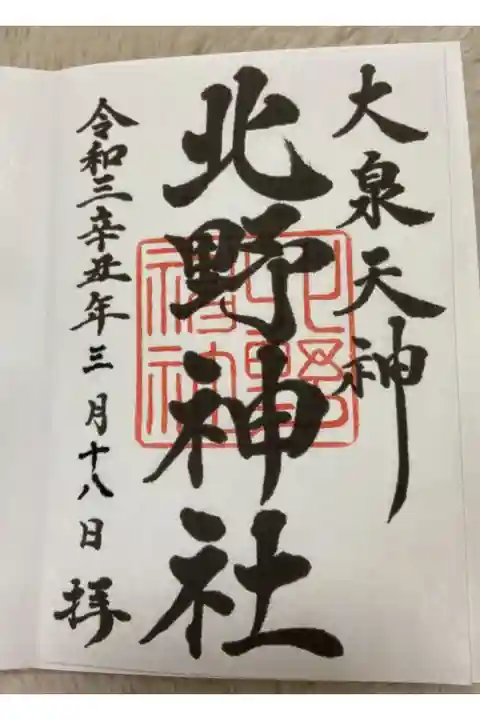 大泉天神
北野神社
令和三辛丑年三月十八日 拝
北野
神社